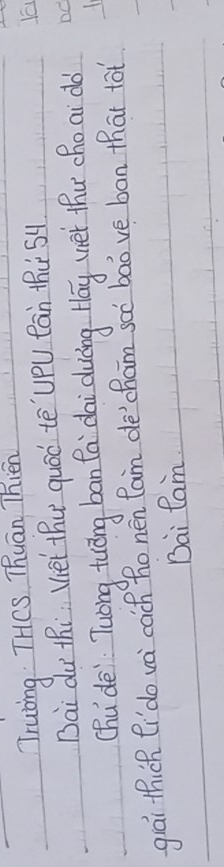 Trường: THCS Thuận Thiên
Bài dự thi: Viết thư quốc tế UPU lần thứ 54
Chủ đề: Tưởng tượng bạn là đại dương. Hãy viết thư cho ai đó
giải thích lí do và cách họ nên làm để chăm sóc bảo vệ bạn thật tốt
Bài làm